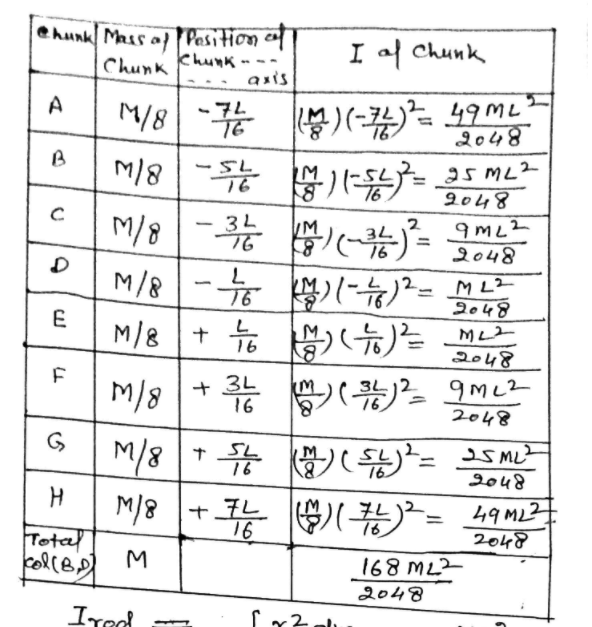 Chunk | Mass of Chunk | Position of Chunk --- --- axis | I of Chunk
A | M/8 | -7L/16 | (M/8)(-7L/16)² = 49ML²/2048
B | M/8 | -5L/16 | (M/8)(-5L/16)² = 25ML²/2048
C | M/8 | -3L/16 | (M/8)(-3L/16)² = 9ML²/2048
D | M/8 | -L/16 | (M/8)(-L/16)² = ML²/2048
E | M/8 | + L/16 | (M/8)(L/16)² = ML²/2048
F | M/8 | + 3L/16 | (M/8)(3L/16)² = 9ML²/2048
G | M/8 | + 5L/16 | (M/8)(5L/16)² = 25ML²/2048
H | M/8 | + 7L/16 | (M/8)(7L/16)² = 49ML²/2048
Total col(B,D) | M | | 168ML²/2048
I rod =